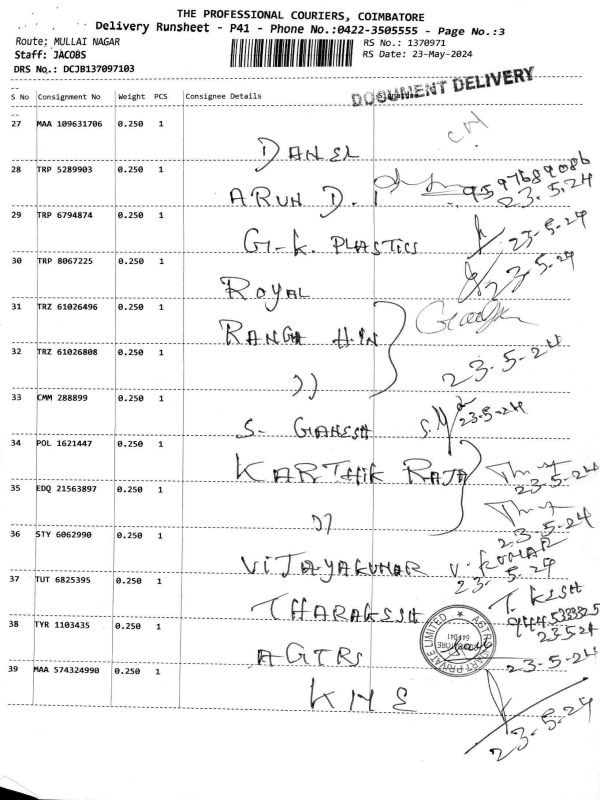 THE PROFESSIONAL COURIERS, COIMBATORE
Delivery Runsheet - P41 - Phone No.:0422-3505555 - Page No.:3
Route: MULLAI NAGAR
RS No.: 1370971
Staff: JACOBS
RS Date: 23-May-2024
DRS No.: DCJB137097103
DOCUMENT DELIVERY
S No Consignment No Weight PCS Consignee Details Signature
27 MAA 109631706 0.250 1
DANEL
28 TRP 5289903 0.250 1
ARUN D. 9597689086
23.5.24
29 TRP 6794874 0.250 1
G.K. PLASTICS 23-5-24
30 TRP 8067225 0.250 1
ROYAL 23-5-24
31 TRZ 61026496 0.250 1
RANGA HIN
32 TRZ 61026808 0.250 1
)) 23-5-24
33 CMM 288899 0.250 1
S. GANESH 23-5-24
34 POL 1621447 0.250 1
KARTHIK RAJA 23-5-24
35 EDQ 21563897 0.250 1
)) 23-5-24
36 STY 6062990 0.250 1
VIJAYAKUMAR V. KUMAR
23-5-24
37 TUT 6825395 0.250 1
THARAGESH T. KESH
23524
38 TYR 1103435 0.250 1
AGTRS 23-5-24
39 MAA 574324990 0.250 1
KNE 23-5-24